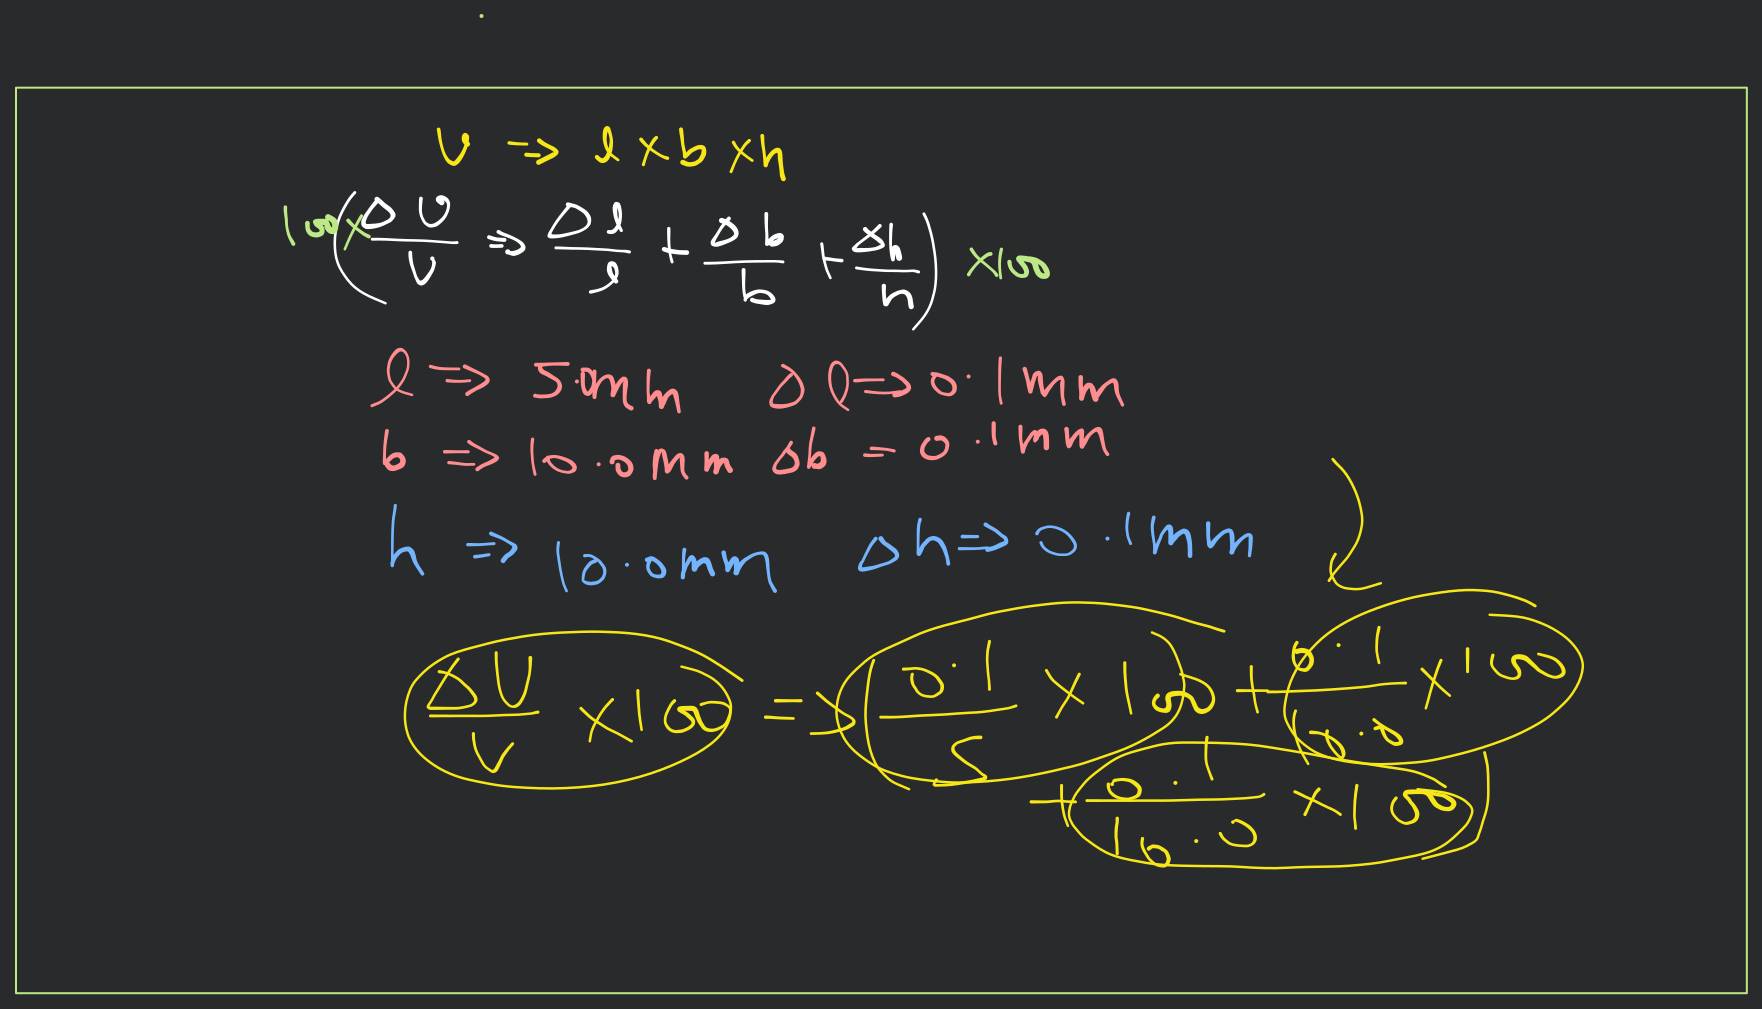 V ⇒ l × b × h
100 × (ΔV/V ⇒ Δl/l + Δb/b + Δh/h) × 100
l ⇒ 5.0mm Δl ⇒ 0.1mm
b ⇒ 10.0mm Δb = 0.1mm
h ⇒ 10.0mm Δh ⇒ 0.1mm
ΔV/V × 100 ⇒ (0.1/5 × 100 + 0.1/10.0 × 100
+ 0.1/10.0 × 100)